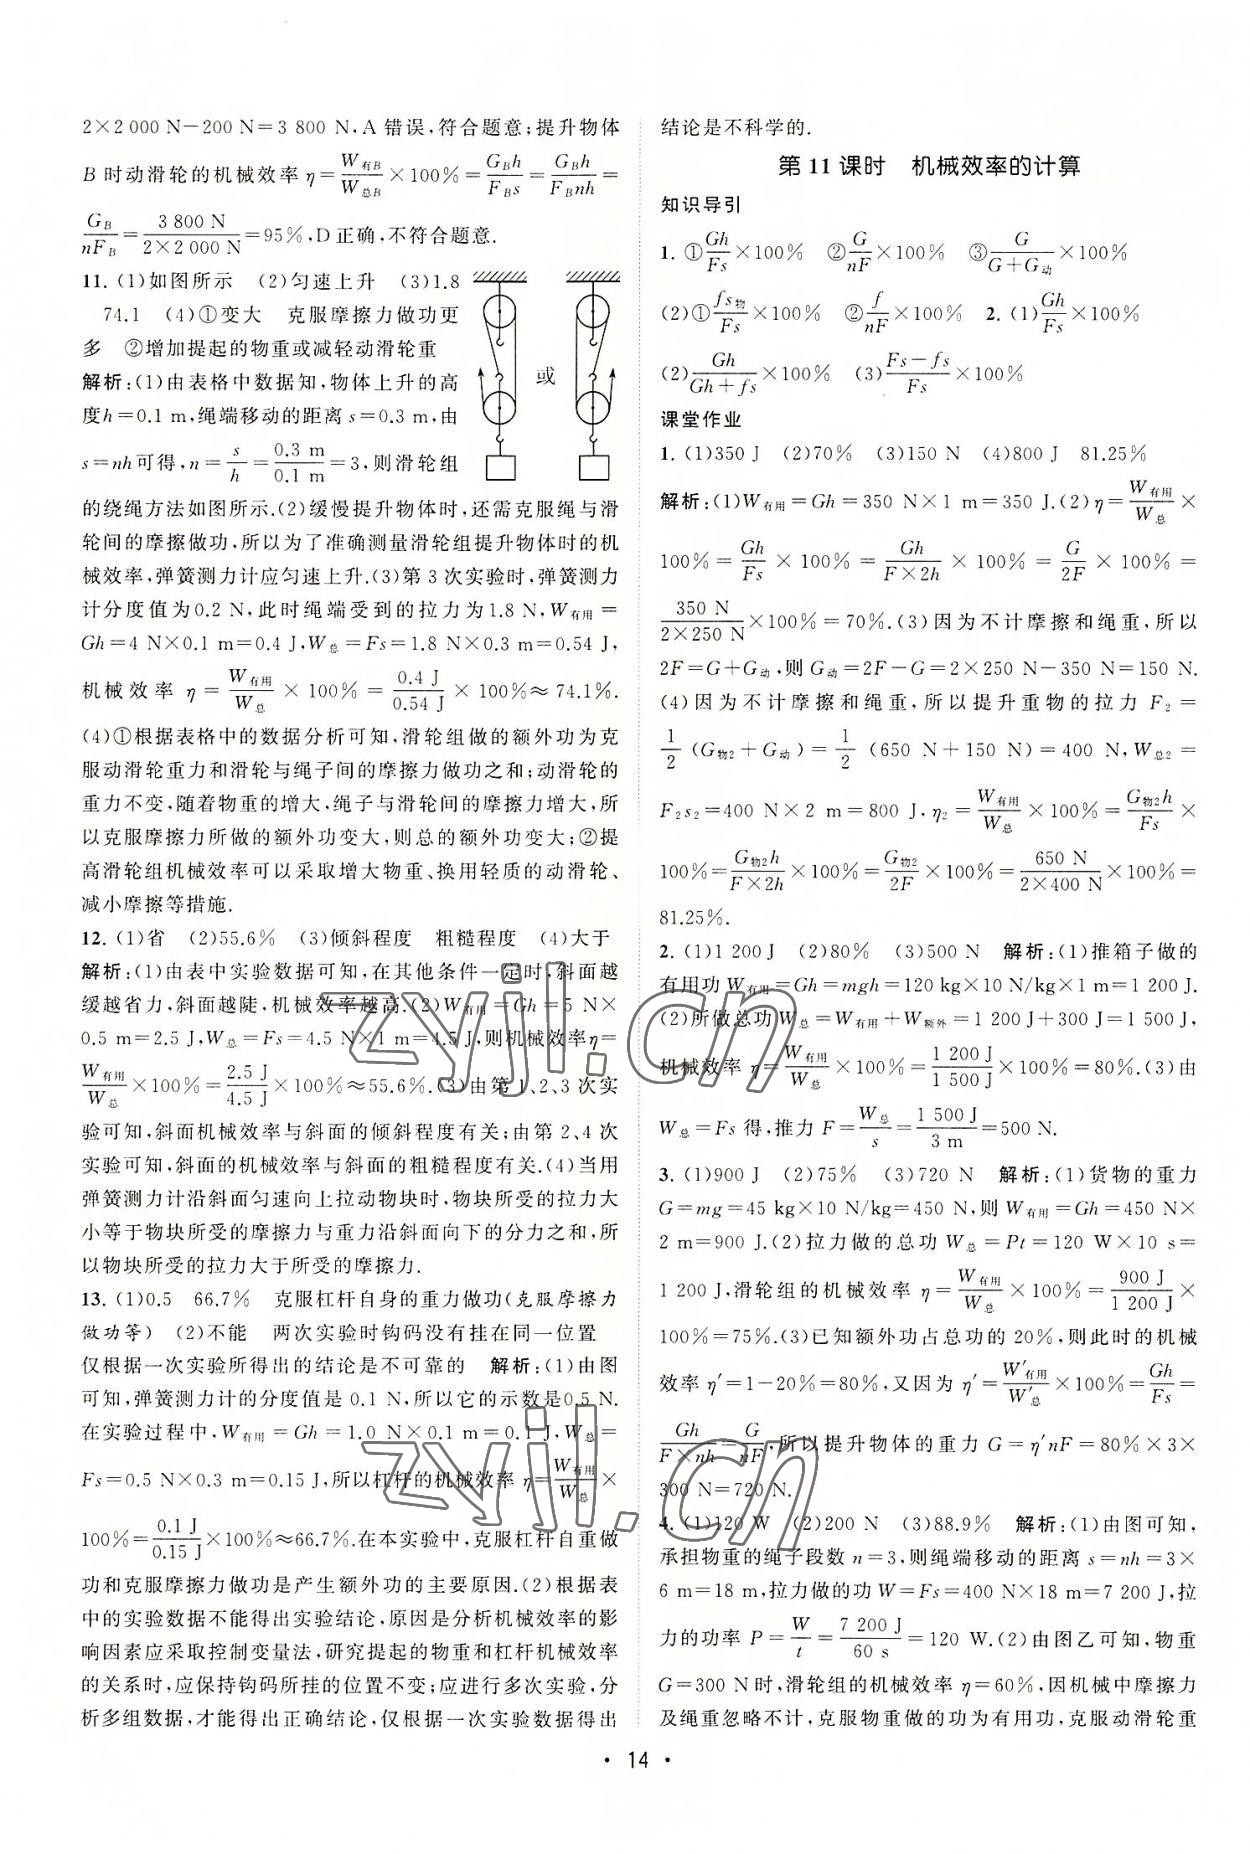 2×2 000 N－200 N＝3 800 N,A 错误,符合题意;提升物体
B 时动滑轮的机械效率 η＝W有用B/W总B×100%＝G_B h/F_B s＝G_B h/F_B nh＝
G_B/nF_B＝3 800 N/2×2 000 N＝95%,D 正确,不符合题意.
11. (1)如图所示 (2)匀速上升 (3)1.8
74.1 (4)①变大 克服摩擦力做功更
多 ②增加提起的物重或减轻动滑轮重
解析:(1)由表格中数据知,物体上升的高
度h＝0.1 m,绳端移动的距离 s＝0.3 m,由
s＝nh可得,n＝s/h＝0.3 m/0.1 m＝3,则滑轮组
或
的绕绳方法如图所示.(2)缓慢提升物体时,还需克服绳与滑
轮间的摩擦做功,所以为了准确测量滑轮组提升物体时的机
械效率,弹簧测力计应匀速上升.(3)第 3 次实验时,弹簧测力
计分度值为0.2 N,此时绳端受到的拉力为1.8 N,W有用＝
Gh＝4 N×0.1 m＝0.4 J,W总＝Fs＝1.8 N×0.3 m＝0.54 J,
机械效率 η＝W有用/W总×100%＝0.4 J/0.54 J×100%≈74.1%.
(4)①根据表格中的数据分析可知,滑轮组做的额外功为克
服动滑轮重力和滑轮与绳子间的摩擦力做功之和;动滑轮的
重力不变,随着物重的增大,绳子与滑轮间的摩擦力增大,所
以克服摩擦力所做的额外功变大,则总的额外功变大;②提
高滑轮组机械效率可以采取增大物重、换用轻质的动滑轮、
减小摩擦等措施.
12. (1)省 (2)55.6% (3)倾斜程度 粗糙程度 (4)大于
解析:(1)由表中实验数据可知,在其他条件一定时,斜面越
缓越省力,斜面越陡,机械效率越高.(2)W有用＝Gh＝5 N×
0.5 m＝2.5 J,W总＝Fs＝4.5 N×1 m＝4.5 J,则机械效率 η＝
W有用/W总×100%＝2.5 J/4.5 J×100%≈55.6%.(3)由第 1、2、3 次实
验可知,斜面机械效率与斜面的倾斜程度有关;由第 2、4 次
实验可知,斜面的机械效率与斜面的粗糙程度有关.(4)当用
弹簧测力计沿斜面匀速向上拉动物块时,物块所受的拉力大
小等于物块所受的摩擦力与重力沿斜面向下的分力之和,所
以物块所受的拉力大于所受的摩擦力.
13. (1)0.5 66.7% 克服杠杆自身的重力做功(克服摩擦力
做功等) (2)不能 两次实验时钩码没有挂在同一位置
仅根据一次实验所得出的结论是不可靠的 解析:(1)由图
可知,弹簧测力计的分度值是 0.1 N,所以它的示数是0.5 N.
在实验过程中,W有用＝Gh＝1.0 N×0.1 m＝0.1 J,W总＝
Fs＝0.5 N×0.3 m＝0.15 J,所以杠杆的机械效率 η＝W有用/W总×
100%＝0.1 J/0.15 J×100%≈66.7%.在本实验中,克服杠杆自重做
功和克服摩擦力做功是产生额外功的主要原因.(2)根据表
中的实验数据不能得出实验结论,原因是分析机械效率的影
响因素应采取控制变量法,研究提起的物重和杠杆机械效率
的关系时,应保持钩码所挂的位置不变;应进行多次实验,分
析多组数据,才能得出正确结论,仅根据一次实验数据得出
结论是不科学的.
第 11 课时 机械效率的计算
知识导引
1. ①Gh/Fs×100% ②G/nF×100% ③G/G＋G动×100%
(2)①fs物/Fs×100% ②f/nF×100% 2. (1)Gh/Fs×100%
(2)Gh/Gh＋fs×100% (3)Fs－fs/Fs×100%
课堂作业
1. (1)350 J (2)70% (3)150 N (4)800 J 81.25%
解析:(1)W有用＝Gh＝350 N×1 m＝350 J.(2) η＝W有用/W总×
100%＝Gh/Fs×100%＝Gh/F×2h×100%＝G/2F×100%＝
350 N/2×250 N×100%＝70%.(3)因为不计摩擦和绳重,所以
2F＝G＋G动,则 G动＝2F－G＝2×250 N－350 N＝150 N.
(4)因为不计摩擦和绳重,所以提升重物的拉力 F₂＝
1/2(G物2＋G动)＝1/2(650 N＋150 N)＝400 N,W总2＝
F₂s₂＝400 N×2 m＝800 J,η₂＝W有用/W总×100%＝G物2h/Fs×
100%＝G物2h/F×2h×100%＝G物2/2F×100%＝650 N/2×400 N×100%＝
81.25%.
2. (1)1 200 J (2)80% (3)500 N 解析:(1)推箱子做的
有用功 W有用＝Gh＝mgh＝120 kg×10 N/kg×1 m＝1 200 J.
(2)所做总功 W总＝W有用＋W额外＝1 200 J＋300 J＝1 500 J,
机械效率 η＝W有用/W总×100%＝1 200 J/1 500 J×100%＝80%.(3)由
W总＝Fs 得,推力 F＝W总/s＝1 500 J/3 m＝500 N.
3. (1)900 J (2)75% (3)720 N 解析:(1)货物的重力
G＝mg＝45 kg×10 N/kg＝450 N,则 W有用＝Gh＝450 N×
2 m＝900 J.(2)拉力做的总功 W总＝Pt＝120 W×10 s＝
1 200 J,滑轮组的机械效率 η＝W有用/W总×100%＝900 J/1 200 J×
100%＝75%.(3)已知额外功占总功的 20%,则此时的机械
效率 η′＝1－20%＝80%,又因为 η′＝W′有用/W′总×100%＝Gh/Fs＝
Gh/F×nh＝G/nF,所以提升物体的重力 G＝η′nF＝80%×3×
300 N＝720 N.
4. (1)120 W (2)200 N (3)88.9% 解析:(1)由图可知,
承担物重的绳子段数 n＝3,则绳端移动的距离 s＝nh＝3×
6 m＝18 m,拉力做的功 W＝Fs＝400 N×18 m＝7 200 J,拉
力的功率 P＝W/t＝7 200 J/60 s＝120 W.(2)由图乙可知,物重
G＝300 N时,滑轮组的机械效率 η＝60%,因机械中摩擦力
及绳重忽略不计,克服物重做的功为有用功,克服动滑轮重
• 14 •
zyjl.cn
zyjl.cn